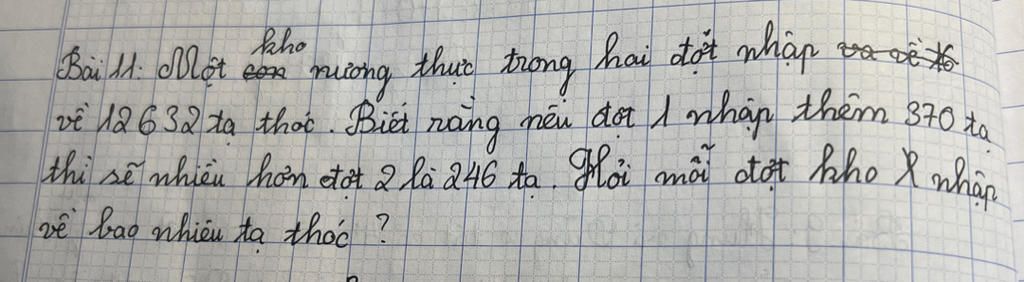 Bài 11: Một kho rương thực trong hai đợt nhập
về 12632 tạ thóc. Biết rằng nếu đợt 1 nhập thêm 370 tạ
thì sẽ nhiều hơn đợt 2 là 246 tạ. Hỏi mỗi đợt kho nhập
về bao nhiêu tạ thóc?